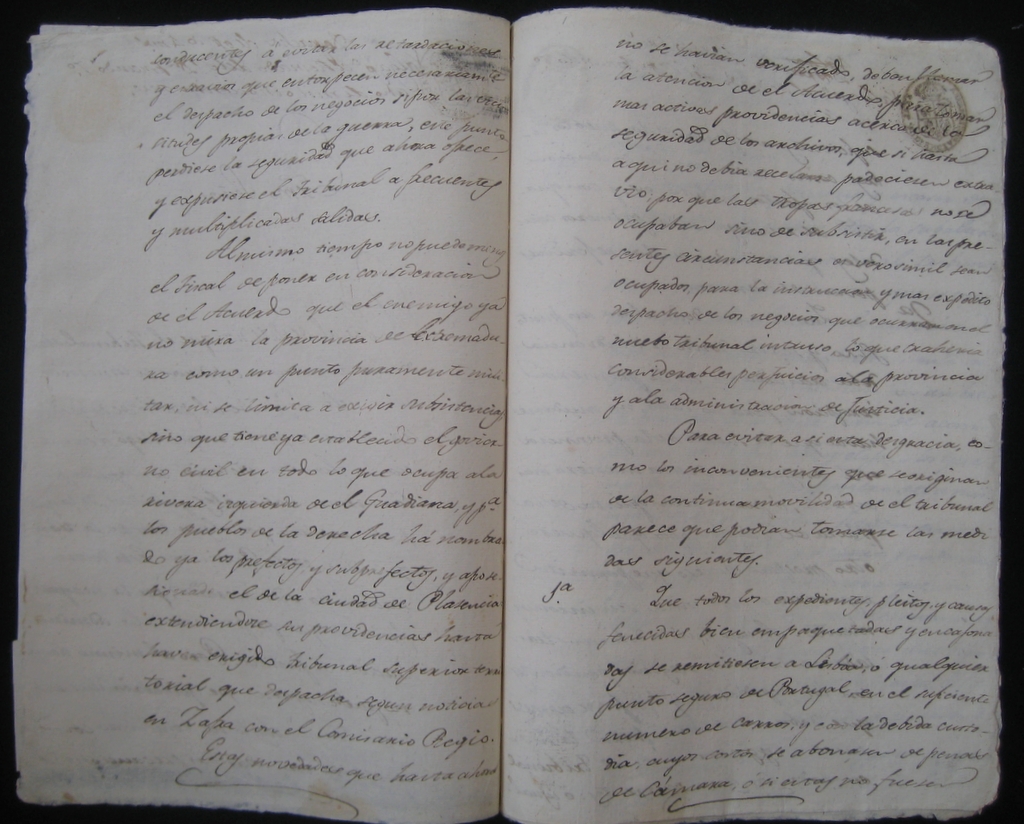 conducentes á evitar las retardaciones
y extravios que entorpecen necesariamte
el despacho de los negocios si por las
propias de la guerra, este punto
perdiese la seguridad que ahora ofrece,
y expusiese el tribunal a frecuentes
y multiplicadas salidas.
Al mismo tiempo no puede menos
el Fiscal de poner en consideracion
de el Acuerdo que el enemigo ya
no mira la provincia de Extremadu-
ra como un punto puramente mili-
tar, ni se limita a exijir subsistencias
sino que tiene ya establecido el govier-
no civil en todo lo que ocupa a la
rivera izquierda de el Guadiana, y pa
los pueblos de la derecha há nombra-
do ya los prefectos y subprefectos, y
el de la ciudad de Plasencia
extendiendose sus providencias hasta
haver erigido tribunal superior terri-
torial que despacha segun noticias
en Zafra con el Comisario Regio.
Estas novedades que hasta ahora
no se havian verificado, deben llamar
la atencion de el Acuerdo para tomar
mas activas providencias acerca de la
seguridad de los archivos, que si hasta
aqui no debia recelarse padeciesen extra-
vio por que las tropas francesas no se
ocupaban sino de subsistir, en las pre-
sentes circunstancias es verosimil sean
ocupados para la instruccion y mas expedito
despacho de los negocios que ocurran en el
nuebo tribunal intruso, lo que traheria
considerables perjuicios a la provincia
y a la administracion de Justicia.
Para evitar asi esta desgracia, co-
mo los inconvenientes que se originan
de la continua movilidad de el tribunal
parece que podian tomarse las medi-
das siguientes.
1.a Que todos los expedientes, pleitos, y causas
fenecidas bien empaquetadas y encajona-
das se remitiesen a Lisbóa, ó qualquier
punto seguro de Portugal, en el suficiente
numero de carros, y con la debida custo-
dia, cuyos costos se abonasen de penas
de Cámara, ó si estas no fuesen